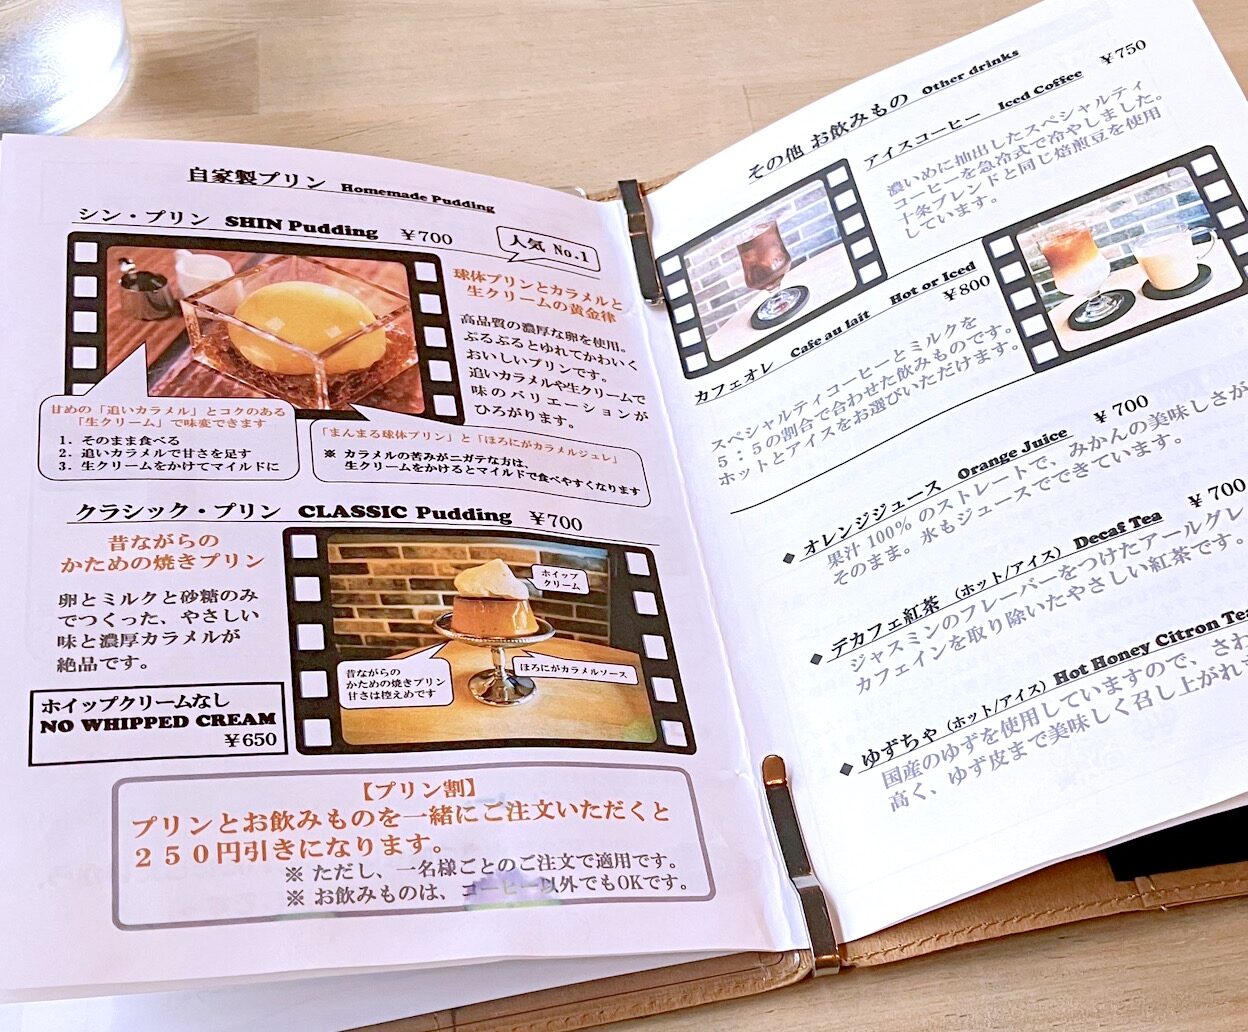 自家製プリン Homemade Pudding
シン・プリン SHIN Pudding ￥700
人気 No.1
球体プリンとカラメルと
生クリームの黄金律
高品質の濃厚な卵を使用。
ぷるぷるとゆれてかわいく
おいしいプリンです。
追いカラメルや生クリームで
味のバリエーションが
ひろがります。
甘めの「追いカラメル」とコクのある
「生クリーム」で味変できます
1. そのまま食べる
2. 追いカラメルで甘さを足す
3. 生クリームをかけてマイルドに
「まんまる球体プリン」と「ほろにがカラメルジュレ」
※ カラメルの苦みがニガテな方は、
生クリームをかけるとマイルドで食べやすくなります
クラシック・プリン CLASSIC Pudding ￥700
昔ながらの
かための焼きプリン
卵とミルクと砂糖のみ
でつくった、やさしい
味と濃厚カラメルが
絶品です。
ホイップ
クリーム
昔ながらの
かための焼きプリン
甘さは控えめです
ほろにがカラメルソース
ホイップクリームなし
NO WHIPPED CREAM
￥650
【プリン割】
プリンとお飲みものを一緒にご注文いただくと
２５０円引きになります。
※ ただし、一名様ごとのご注文で適用です。
※ お飲みものは、コーヒー以外でもOKです。
その他 お飲みもの Other drinks
アイスコーヒー Iced Coffee ￥750
濃いめに抽出したスペシャルティ
コーヒーを急冷式で冷やしました。
十条ブレンドと同じ焙煎豆を使用
しています。
カフェオレ Cafe au lait Hot or Iced
￥800
スペシャルティコーヒーとミルクを
５：５の割合で合わせた飲みものです。
ホットとアイスをお選びいただけます。
◆ オレンジジュース Orange Juice ￥700
果汁100%のストレートで、みかんの美味しさが
そのまま。氷もジュースでできています。
◆ デカフェ紅茶（ホット/アイス）Decaf Tea ￥700
ジャスミンのフレーバーをつけたアールグレ
カフェインを取り除いたやさしい紅茶です。
◆ ゆずちゃ（ホット/アイス）Hot Honey Citron Tea
国産のゆずを使用していますので、さわ
高く、ゆず皮まで美味しく召し上がれ